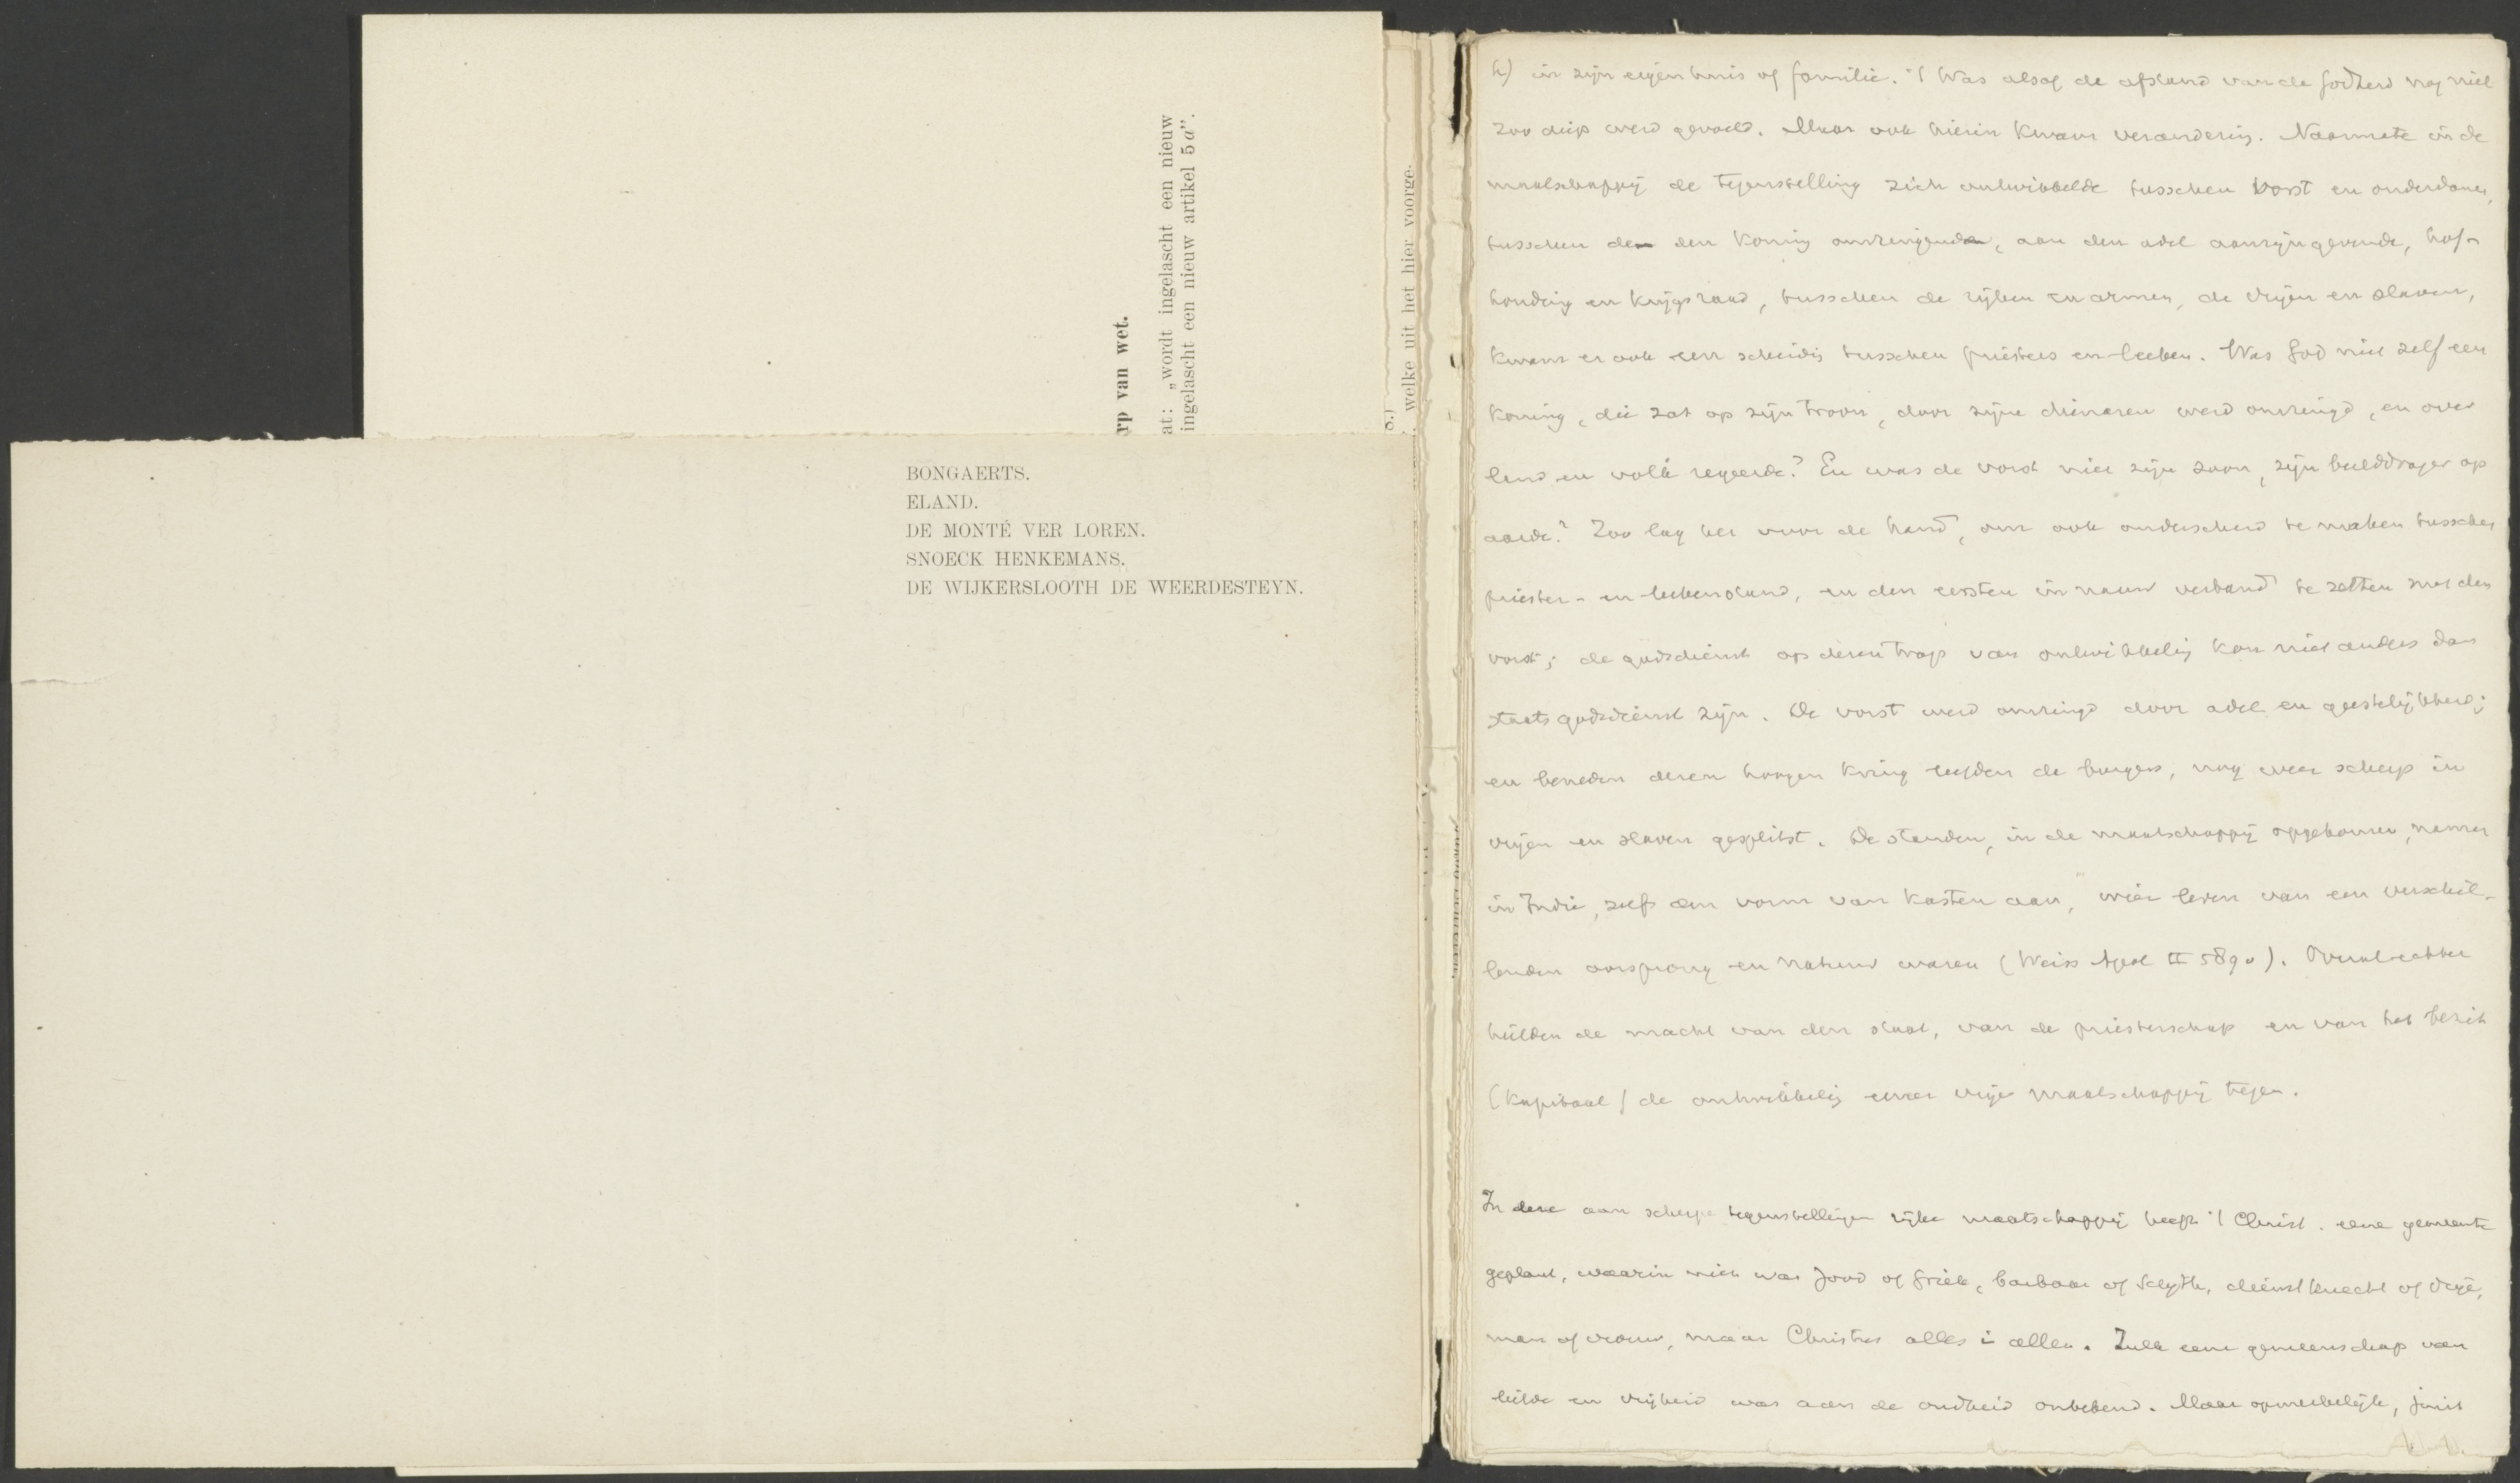 rp van wet.
at: „wordt ingelascht een nieuw
ingelascht een nieuw artikel 5 a”.
8.)
welke uit het hier voorge-
BONGAERTS.
ELAND.
DE MONTÉ VER LOREN.
SNOECK HENKEMANS.
DE WIJKERSLOOTH DE WEERDESTEYN.
h) in zijn eigen huis of familie. 't Was alsof de afstand van de Godheid nog niet
zoo diep werd gevoeld. Maar ook hierin kwam verandering. Naarmate in de
maatschappij de tegenstelling zich ontwikkelde tusschen vorst en onderdanen,
tusschen de den koning omringende, aan den adel aanzijn gevende, hof-
houding en krijgsraad, tusschen de rijken en armen, de vrijen en slaven,
kwam er ook een scheidg tusschen priesters en leeken. Was God niet zelf een
koning, die zat op zijn troon, door zijne dienaren werd omringd, en over
land en volk regeerde? En was de vorst niet zijn zoon, zijn beelddrager op
aarde? Zoo lag het voor de hand, om ook onderscheid te maken tusschen
priester- en leekenstand, en den eersten in nauw verband te zetten met den
vorst; de godsdienst op dezen trap van ontwikkelig kon niet anders dan
staatsgodsdienst zijn. De vorst werd omringd door adel en geestelijkheid;
en beneden dezen hoogen kring leefden de burgers, nog weer scherp in
vrijen en slaven gesplitst. De standen, in de maatschappij opgekomen, namen
in Indië, zelfs den vorm van kasten aan, wier leden van een verschil-
lenden oorsprong en natuur waren (Weiss Apol II 589v). Overal echter
hielden de macht van den staat, van de priesterschap en van het bezit
(kapitaal) de ontwikkelig eener vrije maatschappij tegen.
In deze aan scherpe tegenstellingen rijke maatschappij heeft 't Christ. eene gemeente
geplant, waarin niet was Jood of Griek, barbaar of Scyth, dienstknecht of vrije,
man of vrouw, maar Christus alles i allen. Zulk eene gemeenschap van
liefde en vrijheid was aan de oudheid onbekend. Maar opmerkelijk, juist